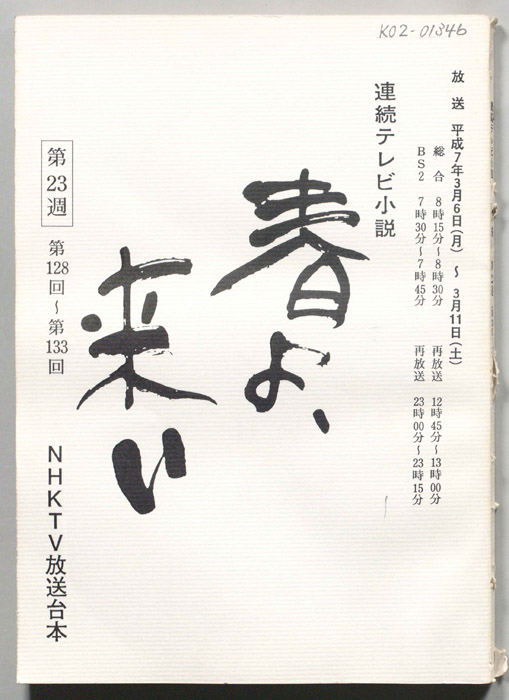 K02-01346
放送 平成7年3月6日(月)～3月11日(土)
総合 8時15分～8時30分 再放送 12時45分～13時00分
BS2 7時30分～7時45分 再放送 23時00分～23時15分
連続テレビ小説
春よ、
来い
第23週
第128回～第133回
NHKTV放送台本